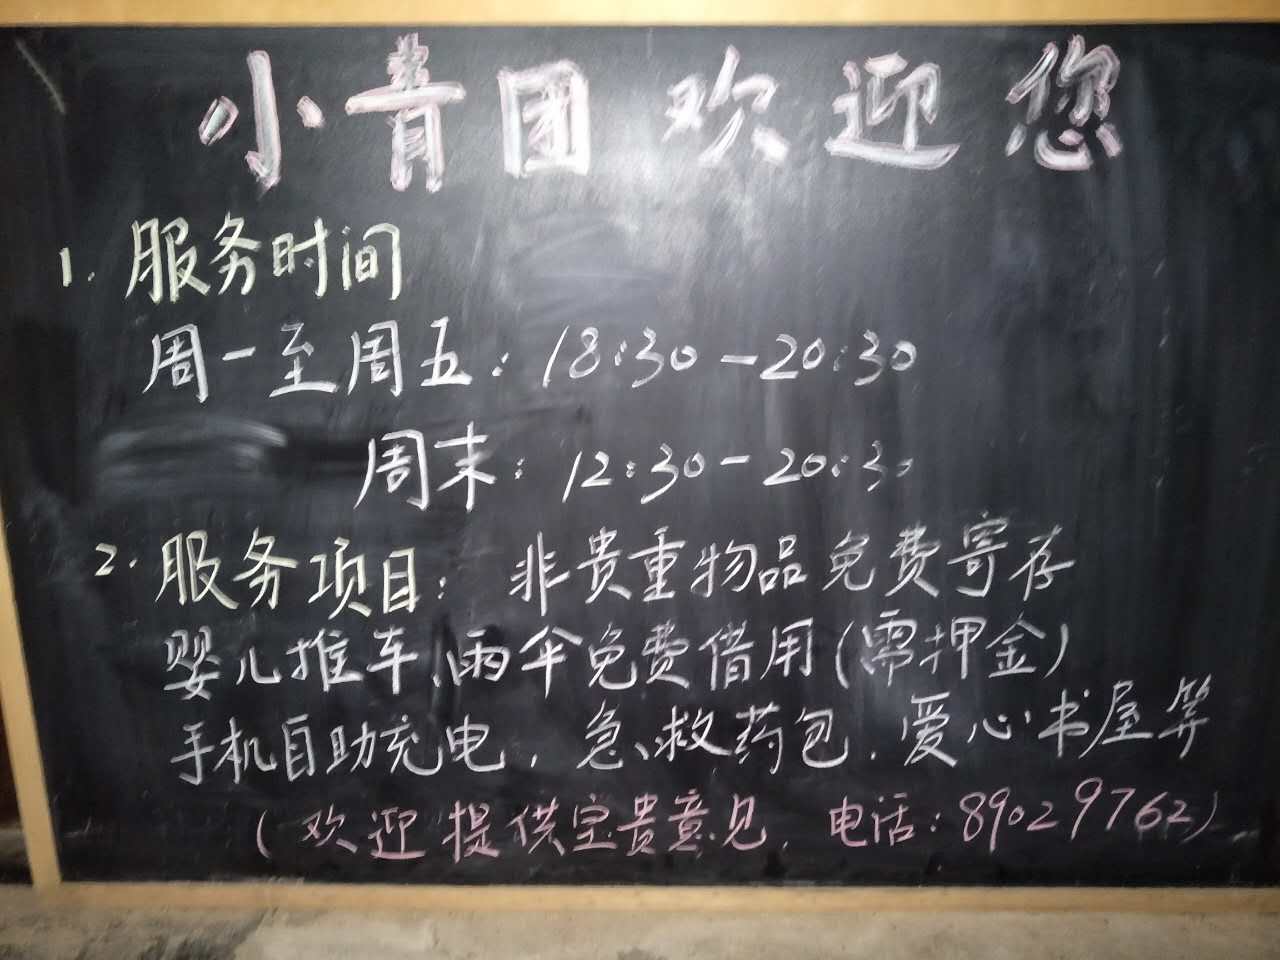 小青团欢迎您
1. 服务时间
周一至周五：18:30-20:30
周末：12:30-20:30
2. 服务项目：非贵重物品免费寄存
婴儿推车、雨伞免费借用(需押金)
手机自助充电，急救药包，爱心书屋等
(欢迎提供宝贵意见，电话：89029762)